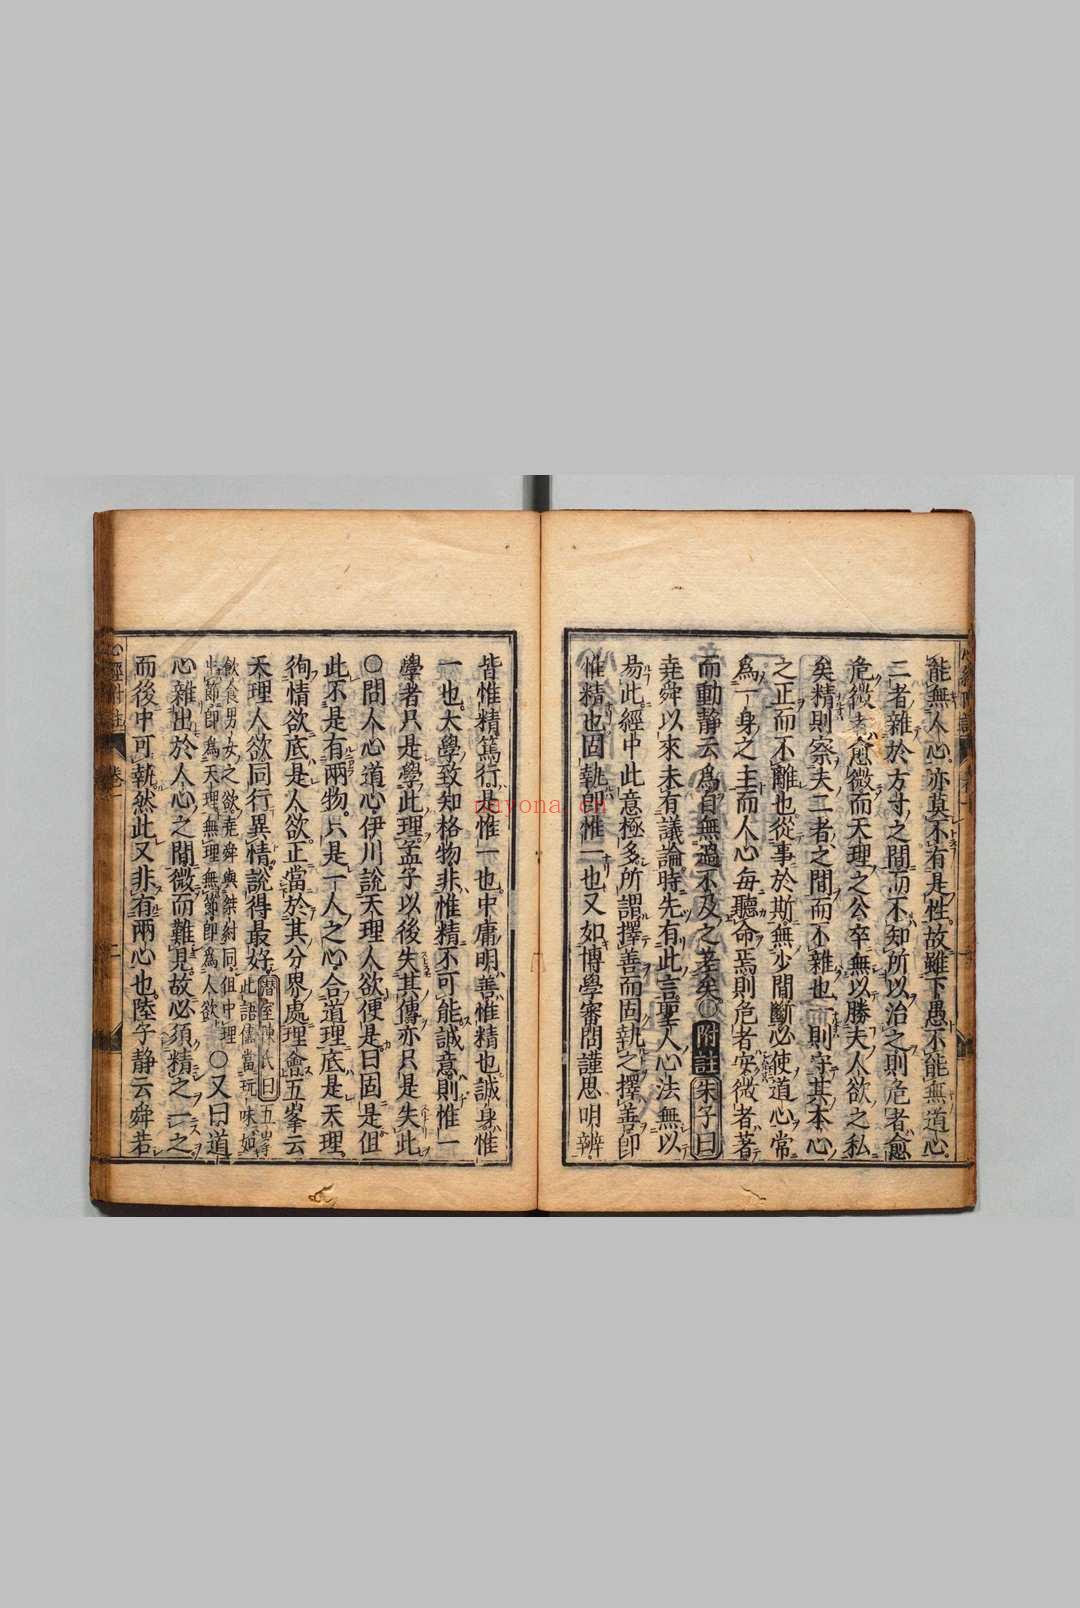 能無人心亦莫不有是性故雖下愚不能無道心
二者雜於方寸之間而不知所以治之則危者愈
危微者愈微而天理之公卒無以勝夫人欲之私
矣精則察夫二者之間而不雜也一則守其本心
之正而不離也從事於斯無少間斷必使道心常
爲一身之主而人心每聽命焉則危者安微者著
而動靜云爲自無過不及之差矣○附註朱子曰
堯舜以來未有議論時先有此言聖人心法無以
易此經中此意極多所謂擇善而固執之擇善即
惟精也固執即惟一也又如博學審問謹思明辨
皆惟精篤行是惟一也中庸明善惟精也誠身惟
一也大學致知格物非惟精不可能誠意則惟一
學者只是學此理孟子以後失其傳亦只是失此
○問人心道心伊川說天理人欲便是曰固是但
此不是有兩物只是一人之心合道理底是天理
徇情欲底是人欲正當於其分界處理會五峯云
天理人欲同行異情說得最好潛室陳氏曰五峯
此語儘當玩味如
飲食男女之欲堯舜與桀紂同但中理
中節即爲天理無理無節即爲人欲○又曰道
心雜出於人心之間微而難見故必須精之一之
而後中可執然此又非有兩心也陸子靜云舜若
心經附註
卷一
nayona.cn